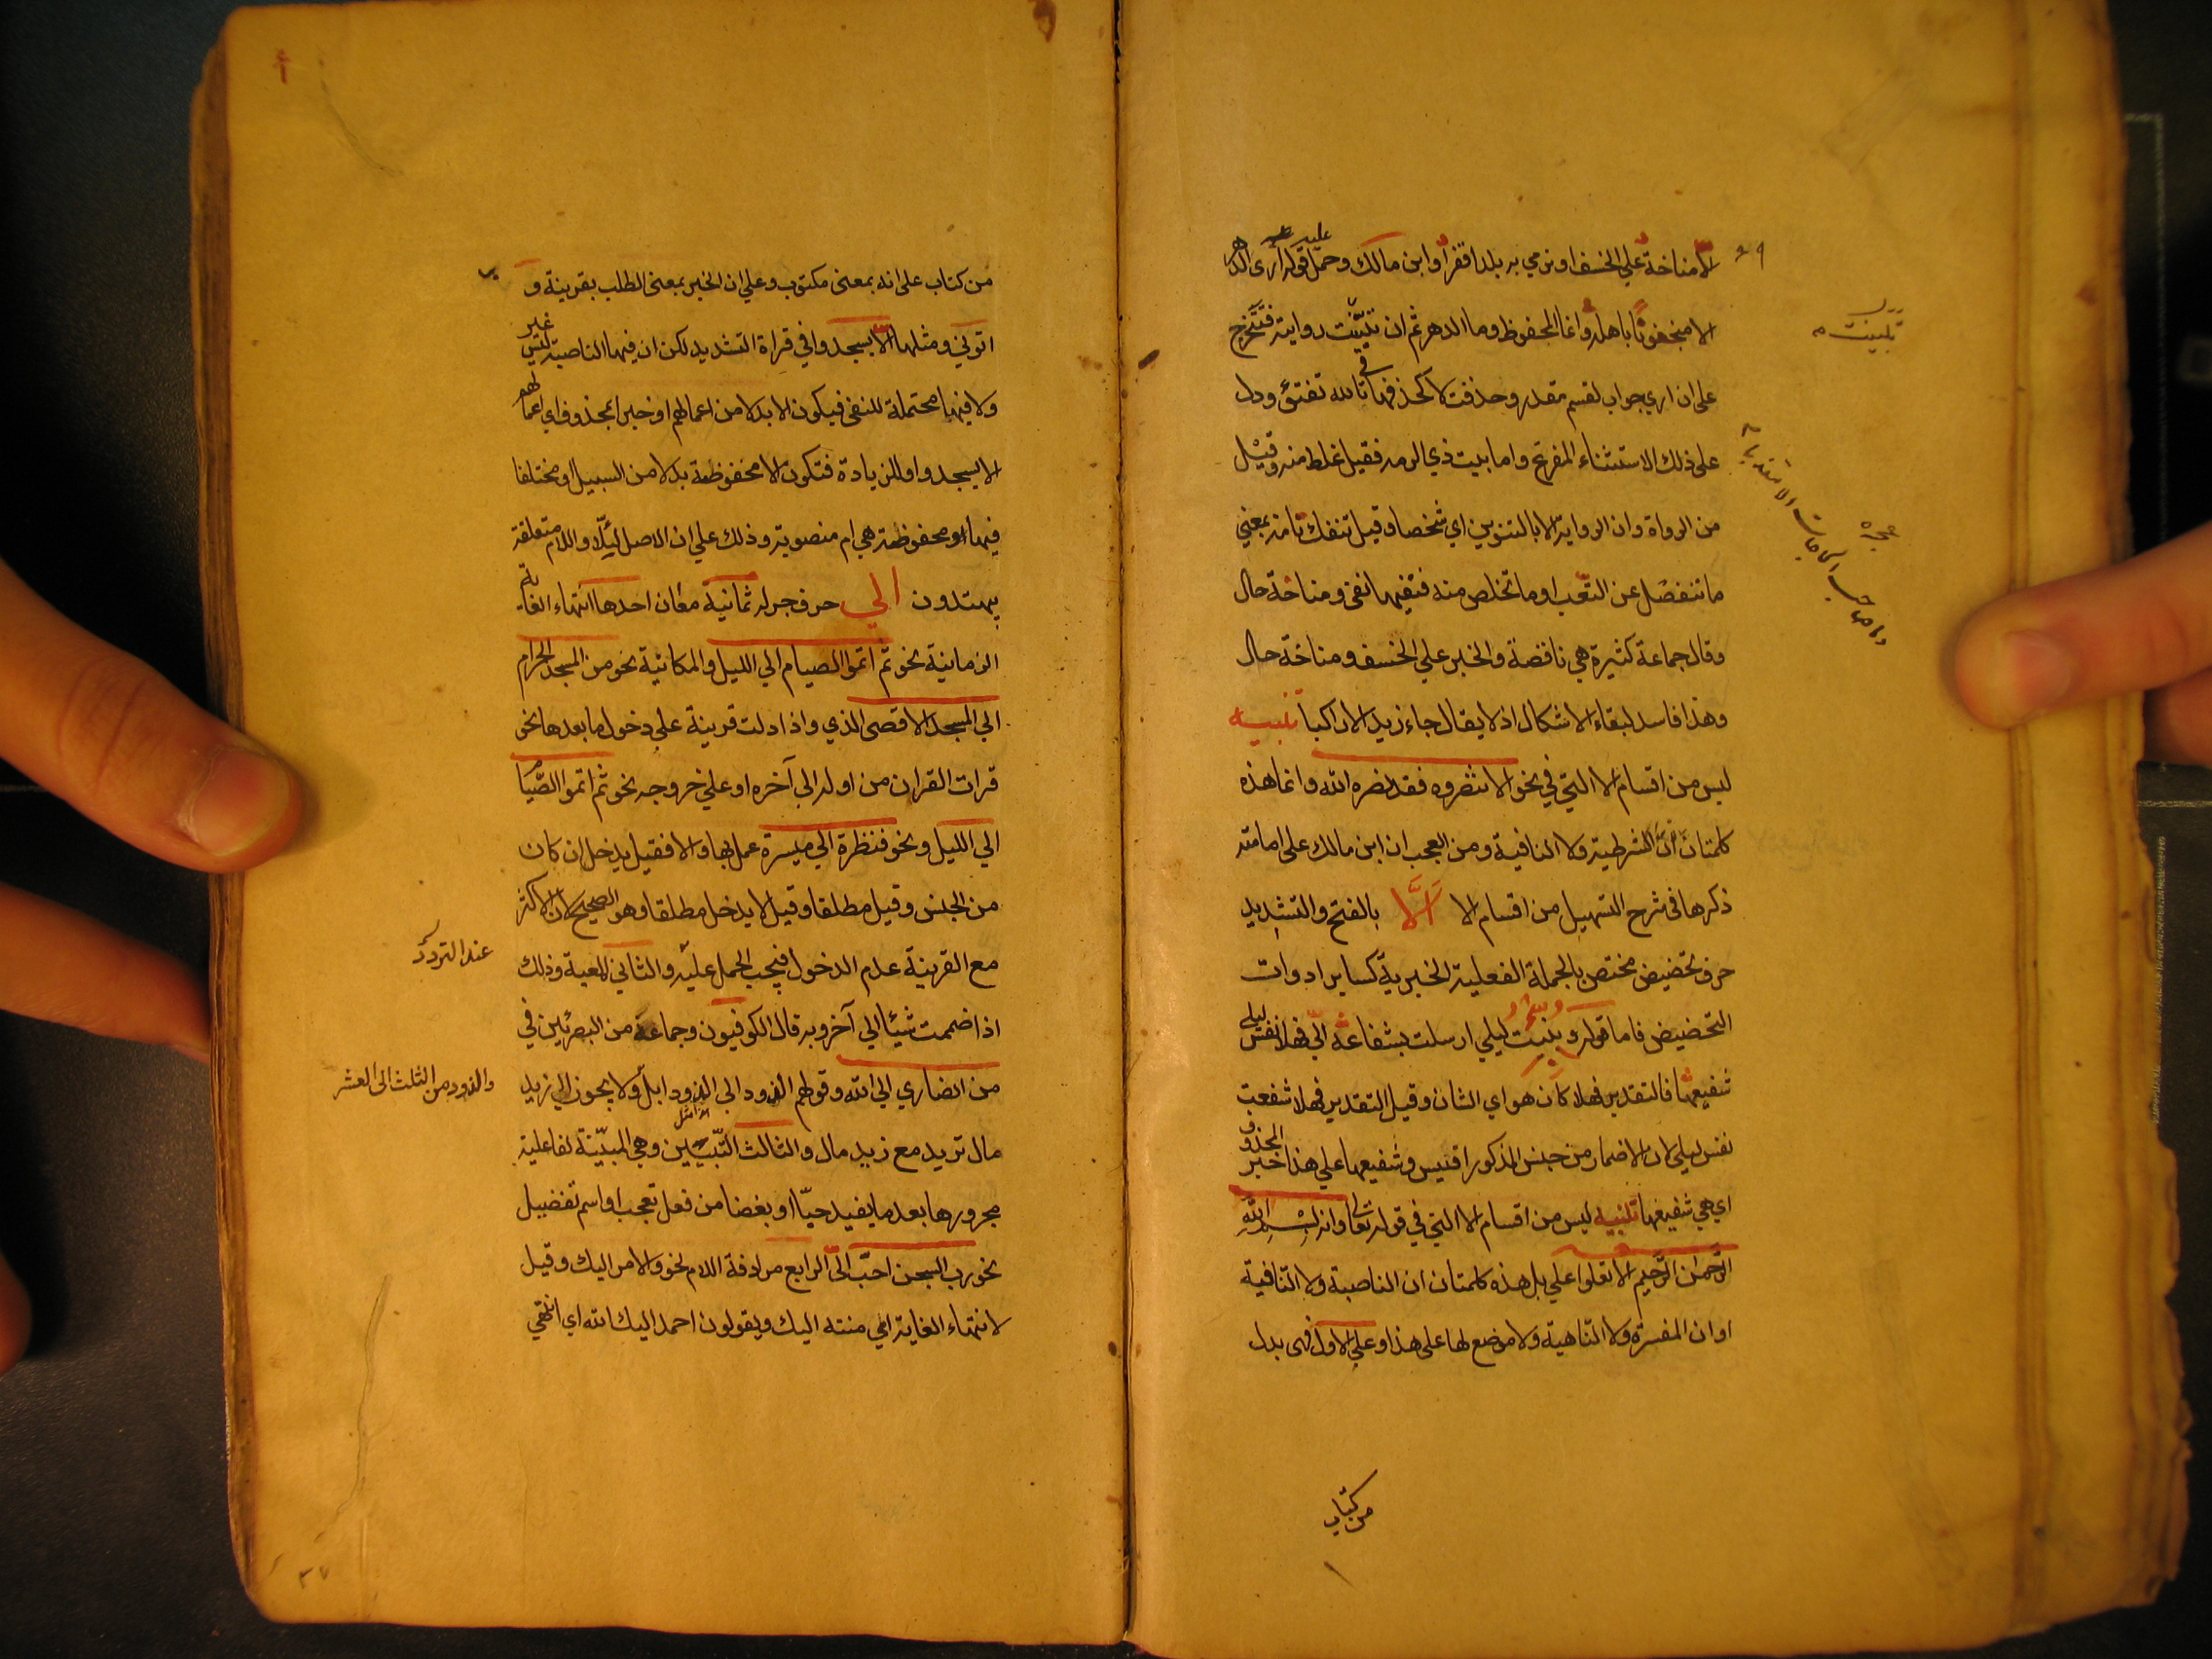 الا مناخة علي الخسف اونرمي بربلدا قفرا وابن مالك وحمل عليه قوله ارى الدهر
الا منجنونا باهله وانما المحفوظ وما الدهر ثم ان ثبتت روايته فتخرج
على ان اري جواب لقسم مقدر وحذفت لا كحذفها في تالله تفتؤ ودل
على ذلك الاستثناء المفرغ واما بيت ذي الرمه فقيل غلط منه وقيل
من الرواة وان الرواية الا بالتنوين اي شخصا وقيل تنفك تامة بمعني
ما تنفصل عن التعب او ما تخلص منه فنفيها نفي ومناخة حال
وقال جماعة كثيرة هي ناقصة والخبر علي الخسف ومناخة حال
وهذا فاسد لبقاء الاشكال اذ لا يقال جاء زيد الا راكبا تنبيه
ليس من اقسام الا التي في نحو الا تنصروه فقد نصره الله وانما هذه
كلمتان ان الشرطية ولا النافية ومن العجب ان ابن مالك على امامته
ذكرها في شرح التسهيل من اقسام الا ألَّا بالفتح والتشديد
حرف تحضيض مختص بالجملة الفعلية الخبرية كساير ادوات
التحضيض فاما قوله ونبئت ليلي ارسلت بشفاعة اليّ فهلا نفس ليلي
شفيعها فالتقدير فهلا كان هو اي الشان وقيل التقدير فهلا شفعت
نفس ليلي لان الاضمار من جنس المذكور اقيس وشفيعها علي هذا خبر المحذوف
اي هي شفيعها تنبيه ليس من اقسام الا التي في قوله تعالى وانه بسم الله
الرحمن الرحيم الا تعلوا علي بل هذه كلمتان ان الناصبة ولا النافية
او ان المفسرة ولا الناهية ولا موضع لها على هذا وعلي الاول فهى بدل
من كتاب
من كتاب على انه بمعنى مكتوب وعلي ان الخبر بمعنى الطلب بقرينة و
اتوني ومثلها الا يسجدوا في قراة التشديد لكن ان فيها الناصبة ليس غير
ولا فيها محتملة للنفي فيكون الا بدلا من اعمالهم او خبرا لمحذوف اي اعمالهم
الا يسجدوا وللزيادة فتكون الا مخفوظة بدلا من السبيل او مختلفا
فيها امخفوظة هي ام منصوبة وذلك علي ان الاصل لئلّا واللام متعلقة
يهتدون الي حرف جر له ثمانية معان احدها انتهاء الغاية
الزمانية نحو ثم اتموا الصيام الي الليل والمكانية نحو من المسجد الحرام
الي المسجد الاقصى الذي واذا دلت قرينة علي دخول ما بعدها نحو
قرات القران من اوله الي آخره او علي خروجه نحو ثم اتموا الصيام
الي الليل ونحو فنظرة الي ميسرة عمل بها والا فقيل يدخل ان كان
من الجنس وقيل مطلقا وقيل لا يدخل مطلقا وهو الصحيح لان الاكثر
مع القرينة عدم الدخول فيجب الحمل عليه والثاني المعية وذلك
عند التردد
اذا ضممت شيئا الي آخر وبه قال الكوفيون وجماعة من البصريين في
من انصاري الي الله وقولهم الذود الى الذود ابل ولا يجوز الي زيد
والذود من الثلث الى العشر
مال تريد مع زيد مال والثالث التبيين وهي المبيّنة لفاعلية
مجرورها بعد ما يفيد حبّا او بغضا من فعل تعجب او اسم تفضيل
نحو رب السجن احبّ اليّ الرابع مرادفة اللام نحو والامر اليك وقيل
لانتهاء الغاية اي منته اليك ويقولون احمد اليك الله اي انهي
٣٧